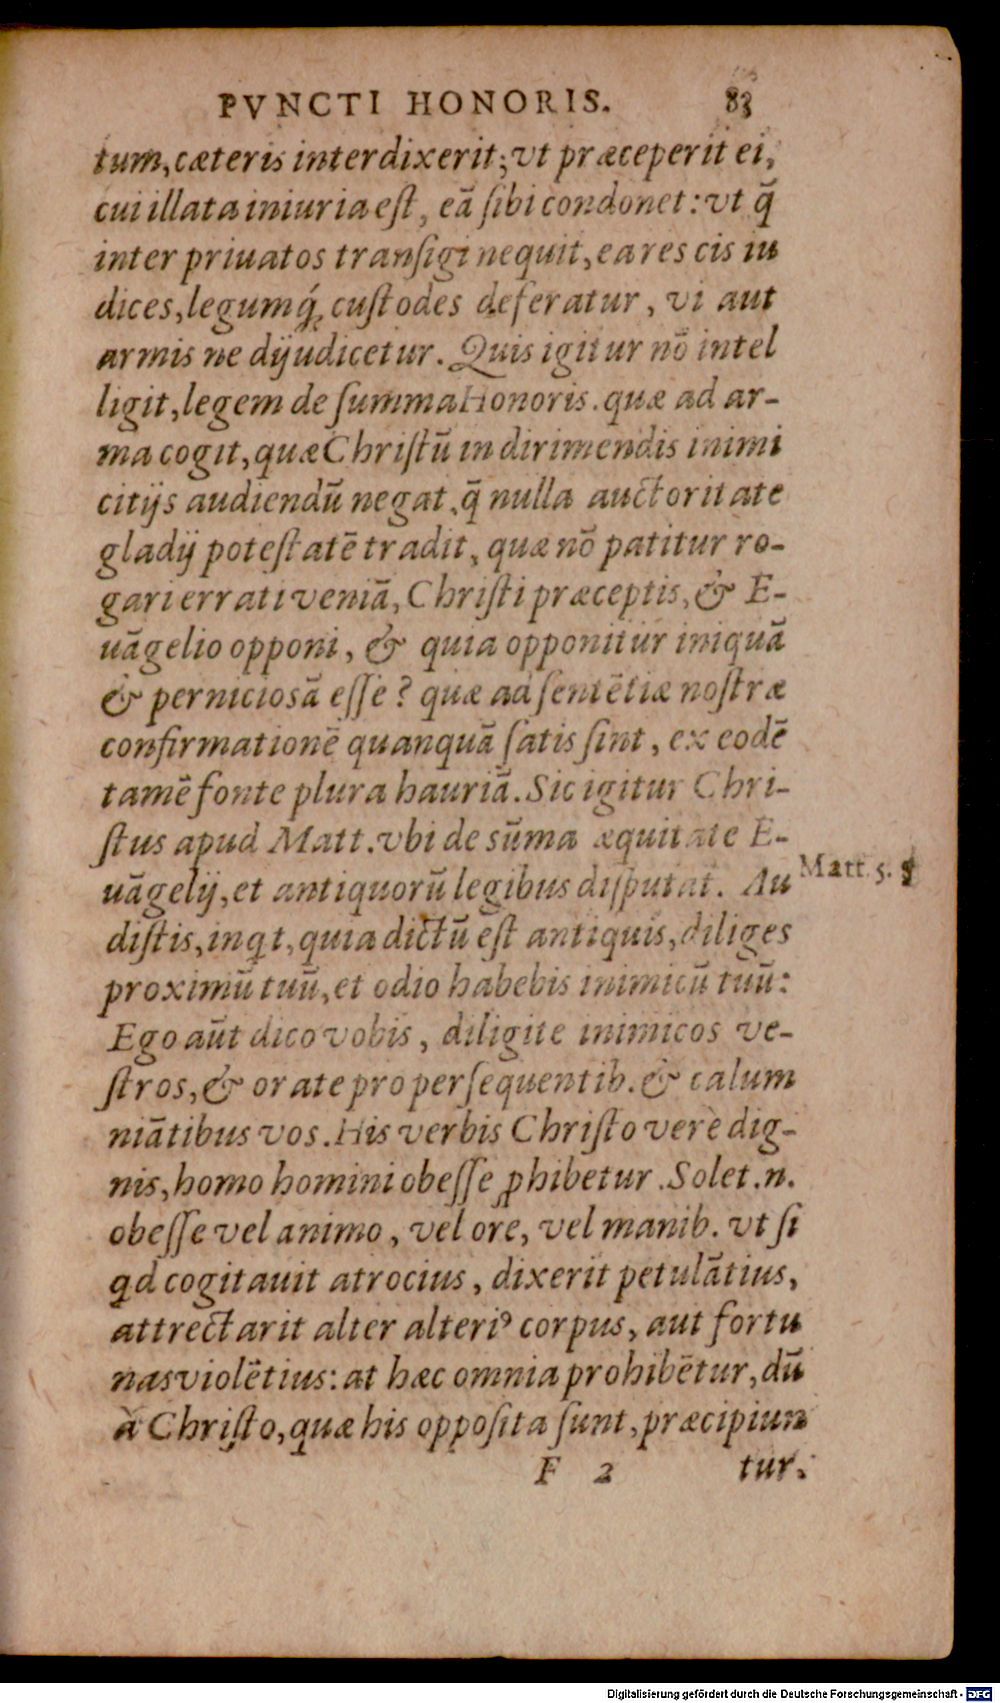 PVNCTI HONORIS. 83
tum, cæteris interdixerit; vt præceperit ei,
cui illata iniuria est, eā sibi condonet: vt q̄
inter priuatos transigi nequit, ea res cis iu
dices, legumq́; custodes deferatur, vi aut
armis ne dijudicetur. Quis igitur nō intel
ligit, legem de summa Honoris. quæ ad ar-
ma cogit, quæ Christū in dirimendis inimi
citijs audiendū negat, q̄ nulla auctoritate
gladij potestatē tradit, quæ nō patitur ro-
gari errati veniā, Christi præceptis, & E-
uāgelio opponi, & quia opponitur iniquā
& perniciosā esse? quæ ad sentētiæ nostræ
confirmationē quanquā satis sint, ex eodē
tamē fonte plura hauriā. Sic igitur Chri-
stus apud Matt. vbi de sūma æquitate E-
uāgelij, et antiquorū legibus disputat. Au
Matt. 5. g
distis, inqt, quia dictū est antiquis, diliges
proximū tuū, et odio habebis inimicū tuū:
Ego aūt dico vobis, diligite inimicos ve-
stros, & orate pro persequentib. & calum
niātibus vos. His verbis Christo verè dig-
nis, homo homini obesse ꝓhibetur. Solet .n.
obesse vel animo, vel ore, vel manib. vt si
qd cogitauit atrocius, dixerit petulātius,
attrectarit alter alteriꝰ corpus, aut fortu
nas violētius: at hæc omnia prohibētur, dū
à Christo, quæ his opposita sunt, præcipiun
F 2 tur.
Digitalisierung gefördert durch die Deutsche Forschungsgemeinschaft - DFG